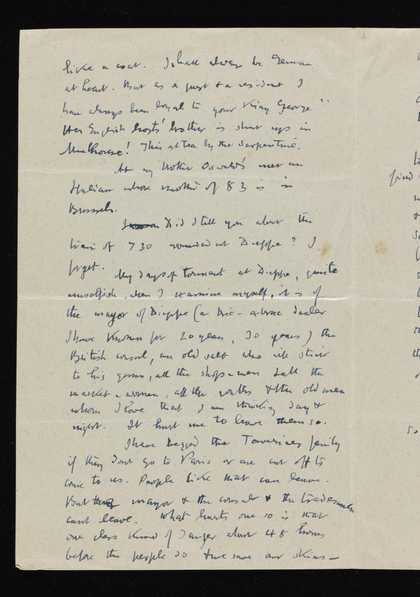 like a coat. I shall always be German
at heart. But as a guest & a resident I
have always been loyal to your King George"
Her English hosts' brother is shut up in
Mulhouse! This at tea by the Serpentine.
At my Mother Oswald's met an
Italian whose mother of 83 is in
Brussels.
Did I tell you about the
train of 730 wounded at Dieppe? I
forget.
My days of torment at Dieppe, quite
unselfish, when I examine myself, is of
the mayor of Dieppe (a bric-a-brac dealer
I have known for 20 years, 30 years) the
British consul, an old salt who will stick
to his guns, all the shops-men & all the
market-women, all the youths & the old men
whom I love that I am thinking day &
night. It hurt me to leave them so.
I have begged the Tavernier family
if they don't go to Paris or are cut off to
come to us. People like that can leave.
But mayor & the consul & the tradesmen
can't leave. What hurts one so is that
one class knows of danger about 48 hours
before the people do & we save our skins –